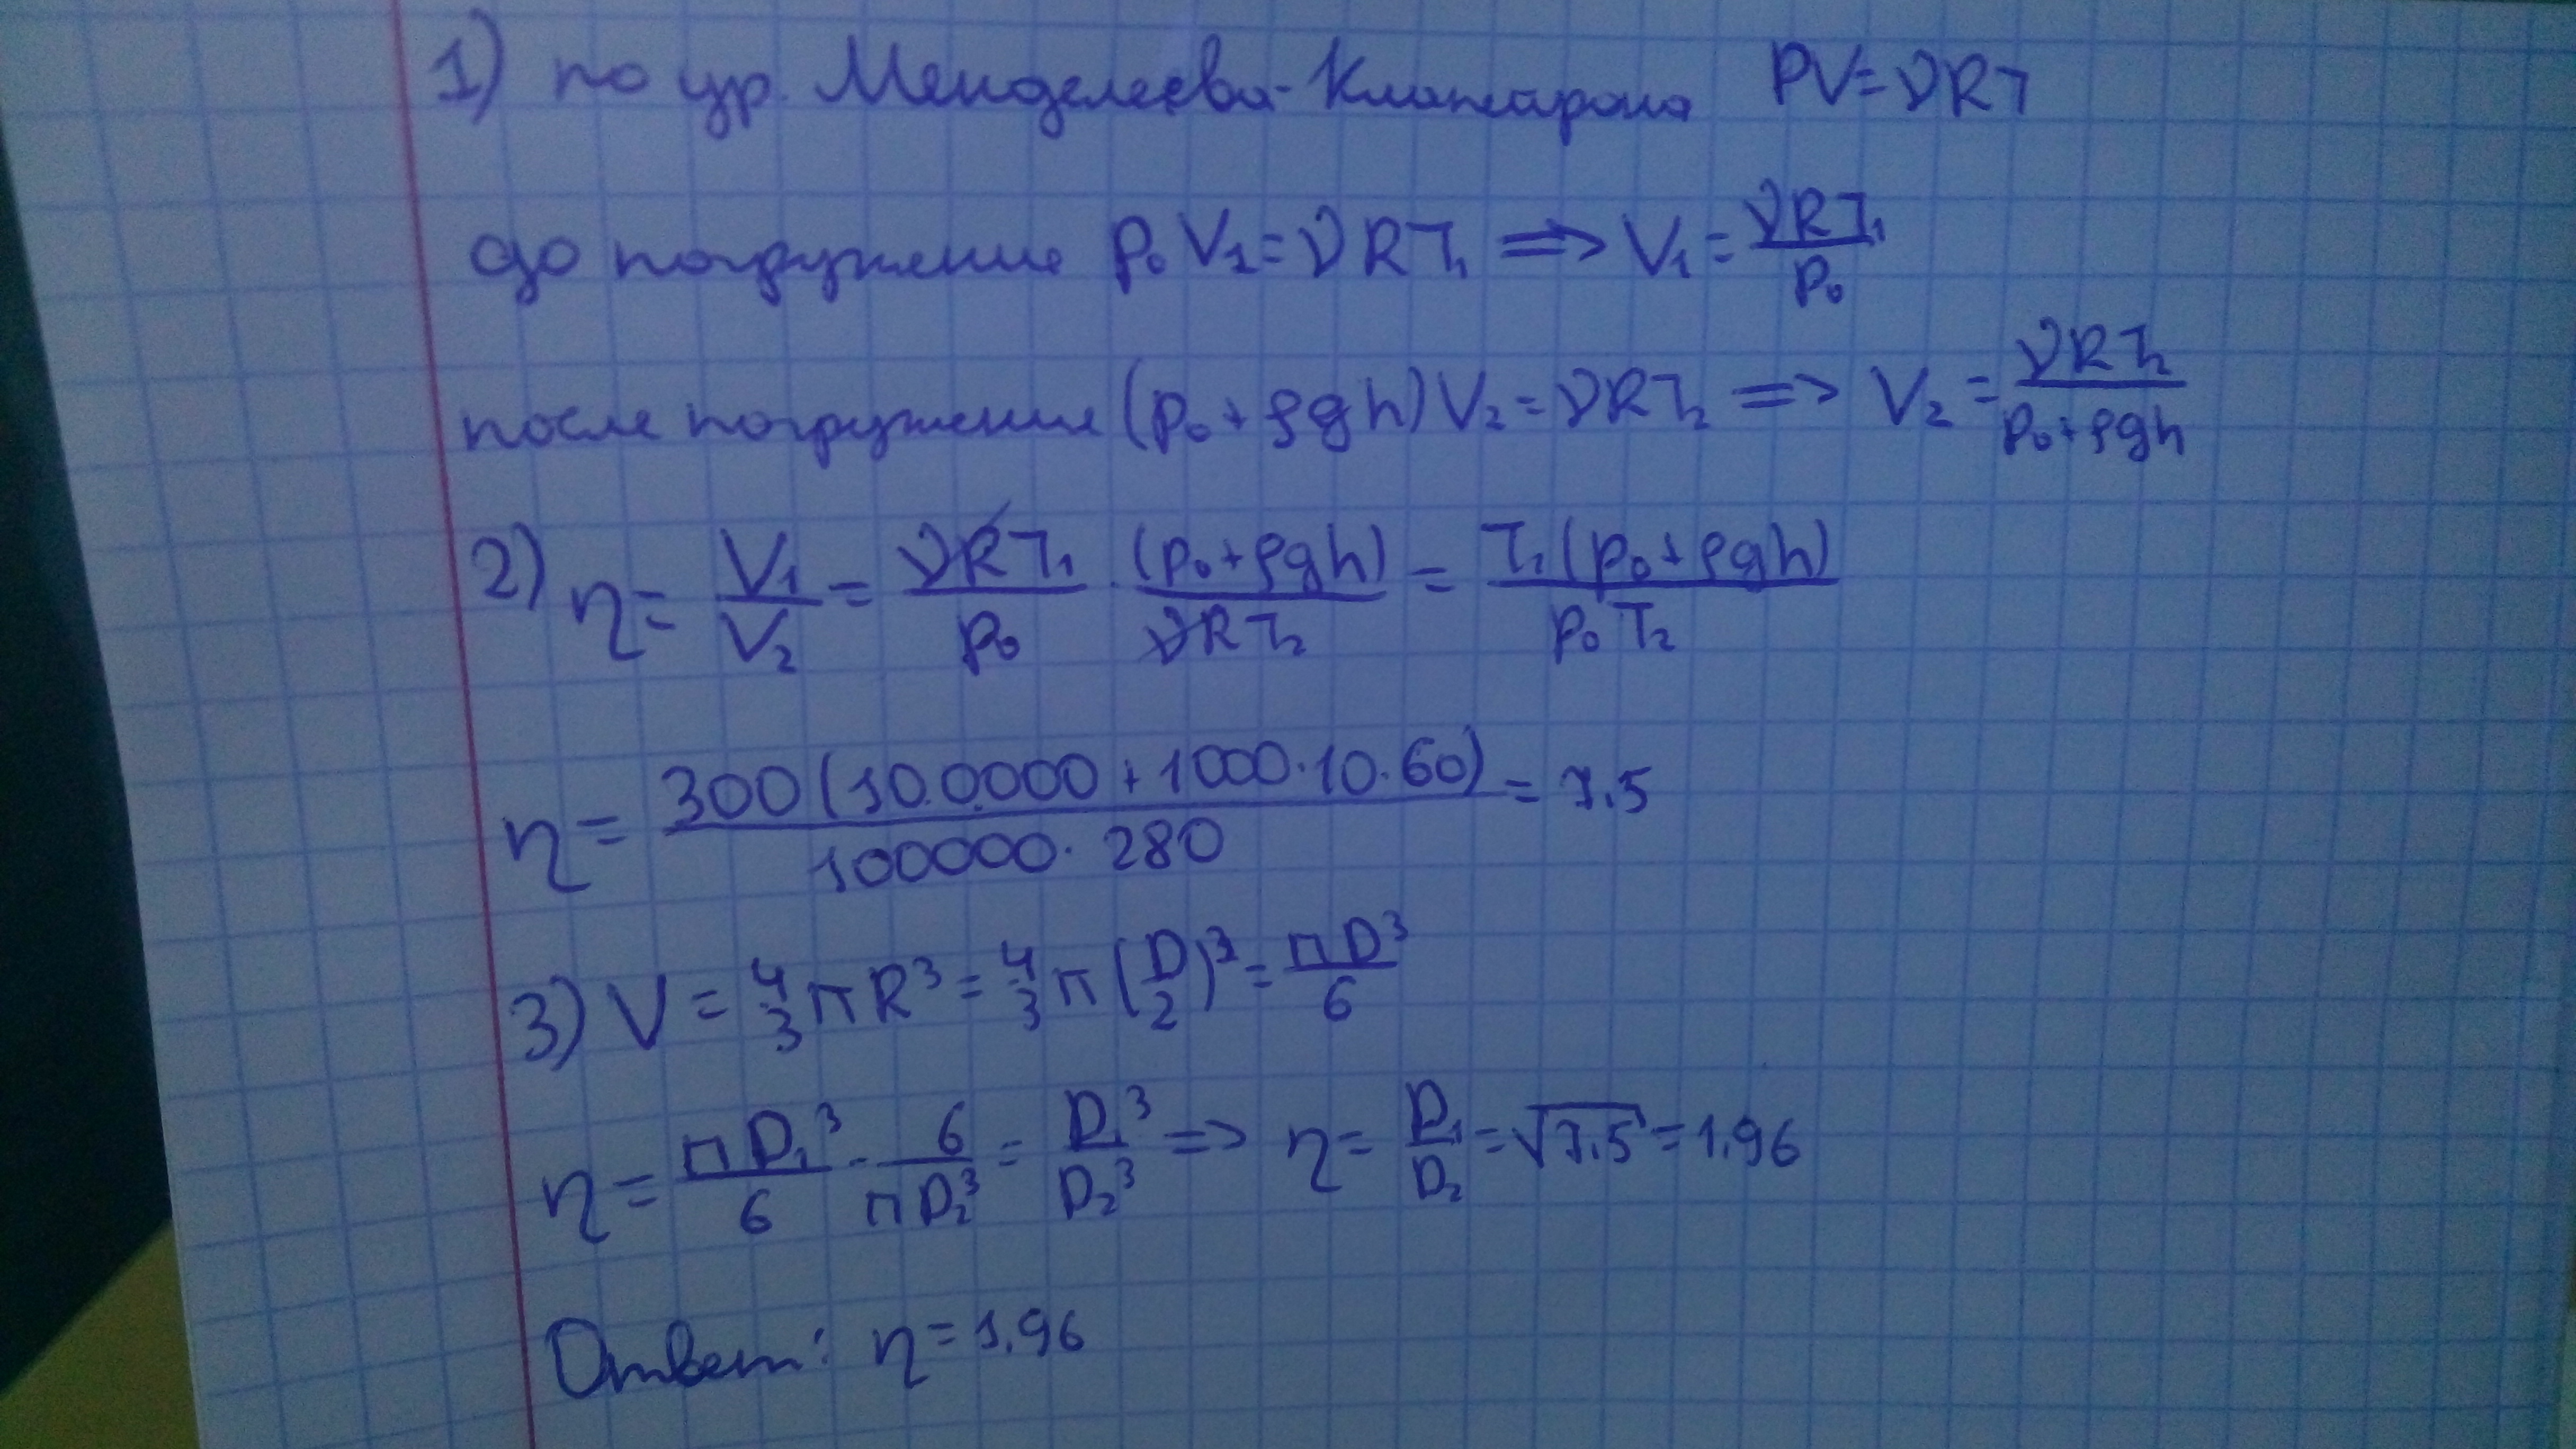 1) по ур. Менделеева-Клапейрона PV=νRT
до погружение p₀V₁=νRT₁ => V₁=νRT₁/p₀
после погружения (p₀+ρgh)V₂=νRT₂ => V₂=νRT₂/(p₀+ρgh)
2) η= V₁/V₂ = νRT₁/p₀ · (p₀+ρgh)/νRT₂ = T₁(p₀+ρgh)/p₀T₂
η= 300(100000+1000·10·60)/100000·280 = 7.5
3) V= 4/3 πR³ = 4/3 π(D/2)³ = πD³/6
η= πD₁³/6 · 6/πD₂³ = D₁³/D₂³ => η= D₁/D₂ = √7.5 = 1.96
Ответ: η=1.96